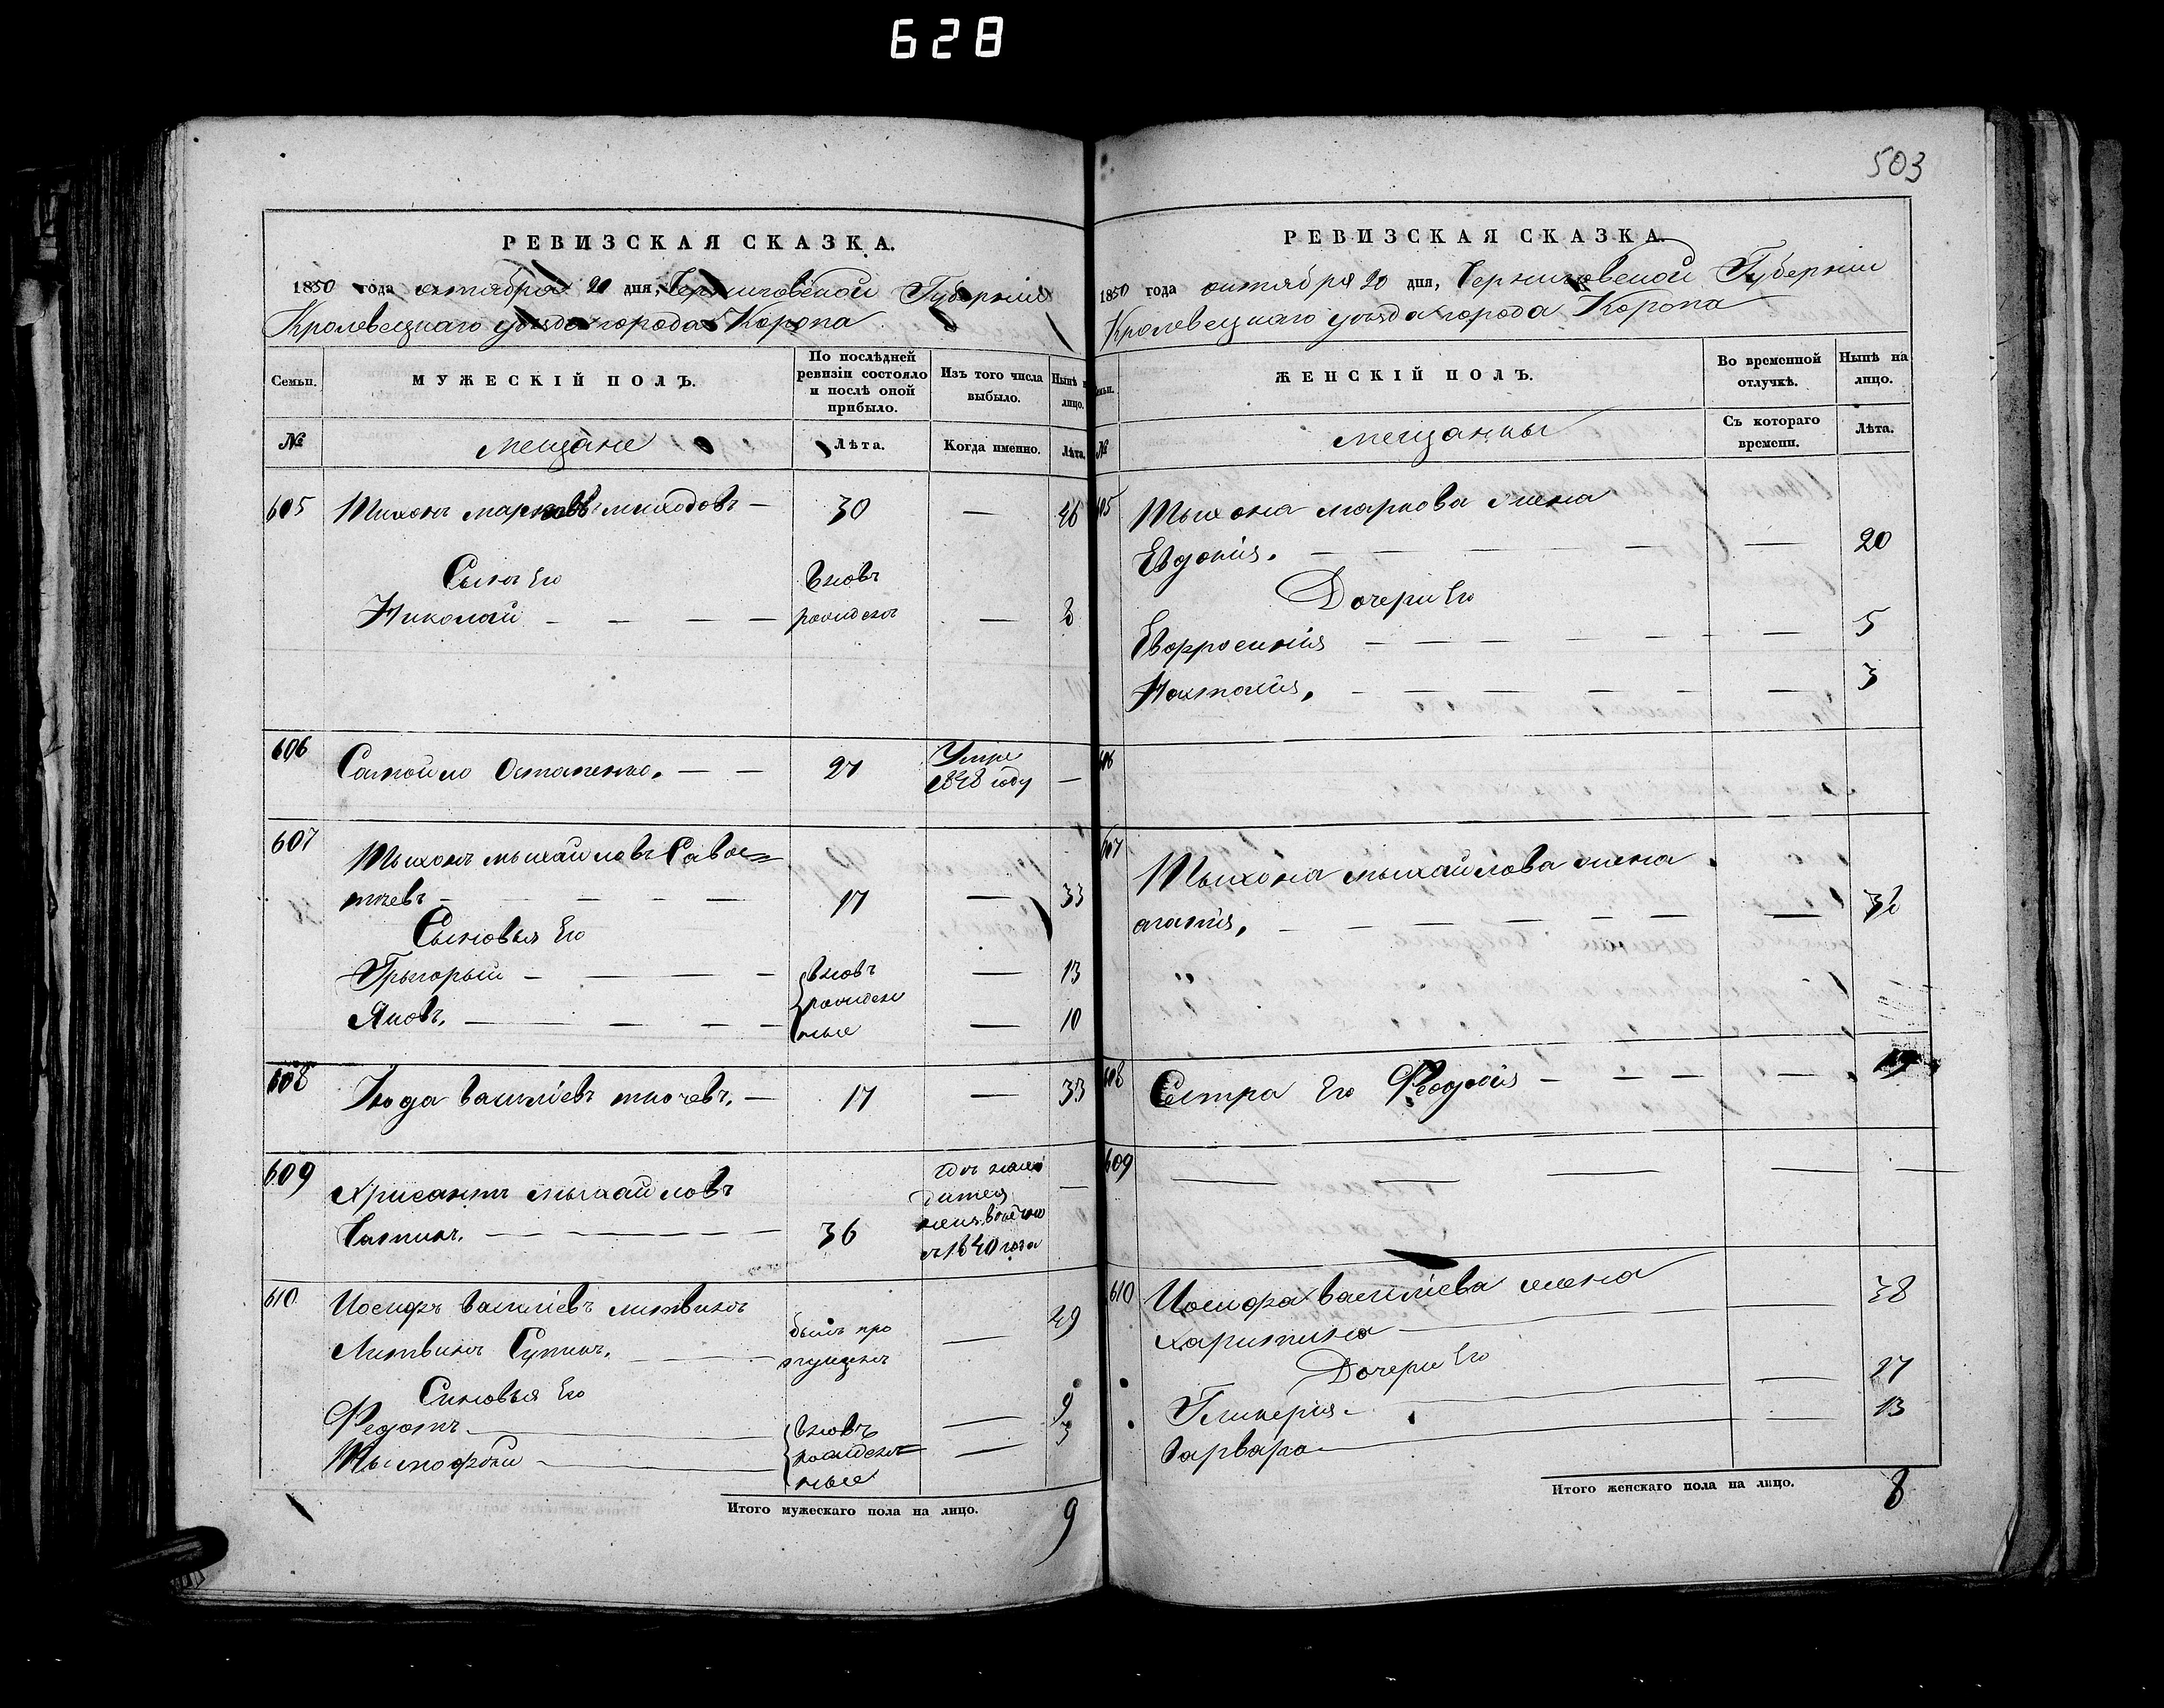 628
503
РЕВИЗСКАЯ СКАЗКА.
1850 года октября 20 дня, Черниговской Губерніи
Кролевецкаго уѣзда города Коропа
Семьи. МУЖЕСКІЙ ПОЛЪ. По послѣдней ревизіи состояло и послѣ оной прибыло. Изъ того числа выбыло. Нынѣ лицо.
№ мещане Лѣта. Когда именно. Лѣта.
605 Тихонъ марковъ — 30 — 46
Сынъ Его вновь
Николай — — — — рожденъ — 2
606 Самойло Остапенко. — — 27 Умре 1848 году —
607 Тыхонъ мыхайловъ Савос=
тѣевъ — — — — — 17 — 33
Сыновья Его
Грыгорый — — — вновь — 13
Яковъ. — — — — — рожден ные — 10
608 Іюда василіевъ ткачевъ. — 17 — 33
609 Хрисантъ мыхайловъ
36 —
неизвѣстно
съ 1840 года
610 Иосифъ василіевъ литвинъ
Литвинъ былъ про пущенъ — 49
Синовья Его
Федотъ — вновь — 9
рожден= ные — 3
Итого мужескаго пола на лицо. 9
РЕВИЗСКАЯ СКАЗКА.
1850 года октября 20 дня, Черниговской Губерніи
Кролевецкаго уѣзда города Коропа
ЖЕНСКІЙ ПОЛЪ. Во временной отлучкѣ. Нынѣ на лицо.
№ мещанкы Съ котораго времени. Лѣта.
605 Тыхона маркова жена
Евдокія. — — — — — 20
Дочери Его
Евфросинія — — — — — — 5
Настасія, — — — — — — 3
606
607 Тыхона мыхайлова жена
агапія, — — — — — — 32
608 Сестра Его Феодосія — — — —
609 — — — — —
610 Иосифа василіева жена — 38
Харитина —
Дочери Его
Гликерія — — 17
варвара — — 13
Итого женскаго пола на лицо. 8